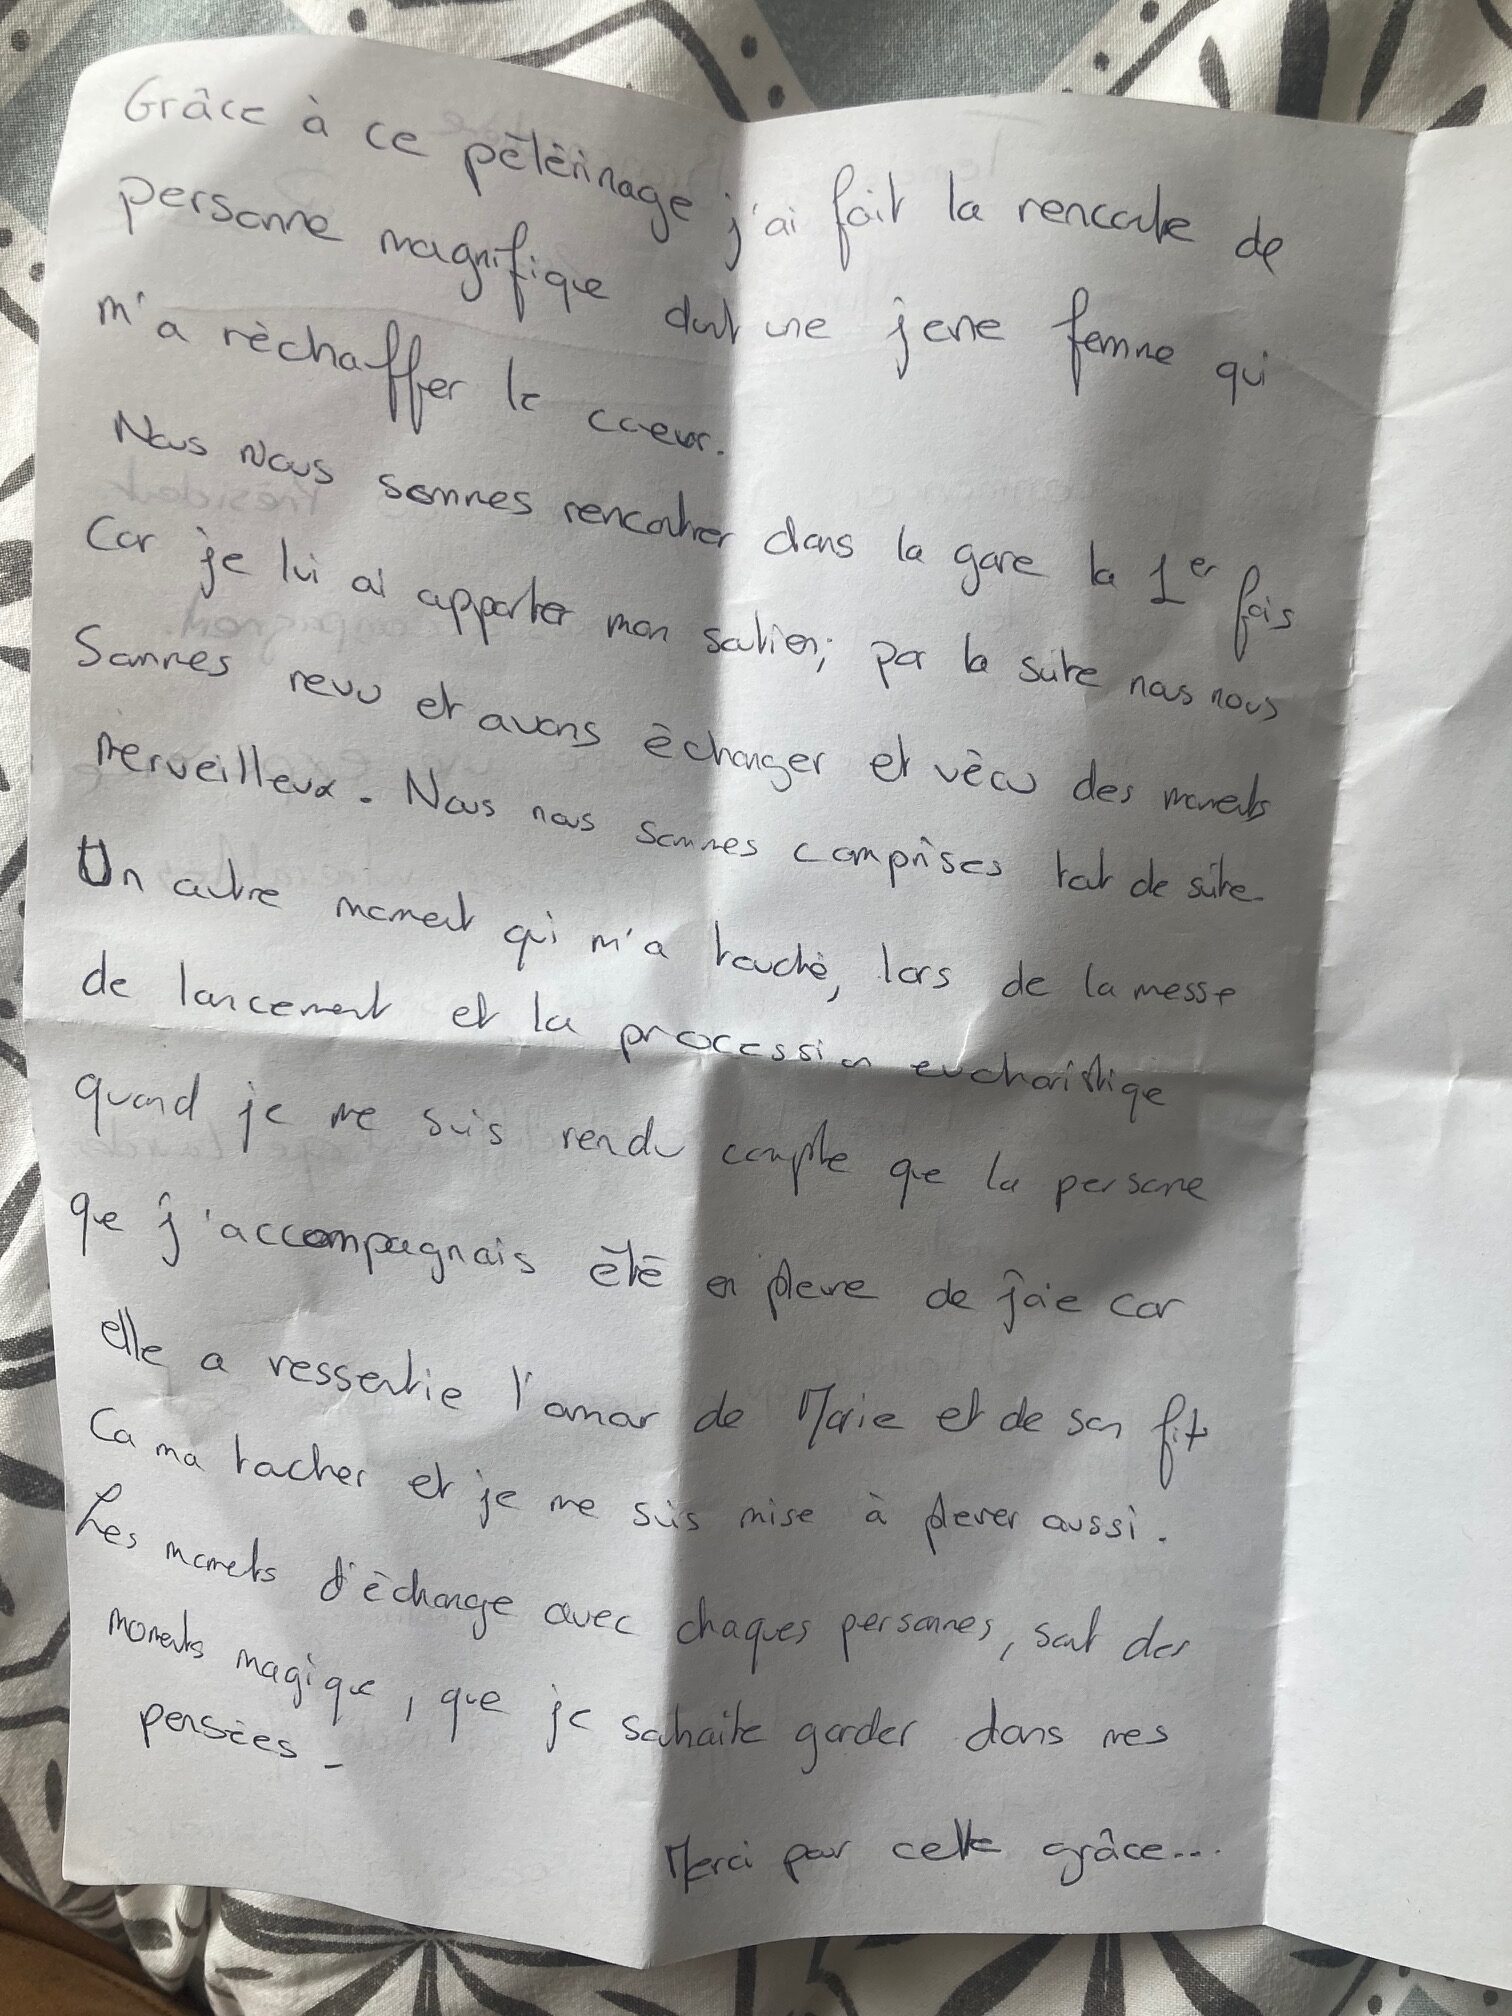 Grâce à ce pèlèrinage j'ai fait la rencontre de
personne magnifique dont une jeune femme qui
m'a rèchaffer le coeur.
Nous Nous sommes rencontrer dans la gare la 1er fois
Car je lui ai apporter mon soutien; par la suite nous nous
Sommes revu et avons èchanger et vècu des moments
merveilleux. Nous nous sommes comprises tout de suite.
Un autre moment qui m'a touchè, lors de la messe
de lancement et la procession eucharistique
quand je me suis rendu compte que la personne
que j'accompagnais étè en pleure de joie car
elle a ressentie l'amour de Marie et de son fils
Ca ma toucher et je me suis mise à pleurer aussi.
Les moments d'èchange avec chaques personnes, sont des
moments magique, que je souhaite garder dans mes
pensèes -
Merci pour cette grâce...